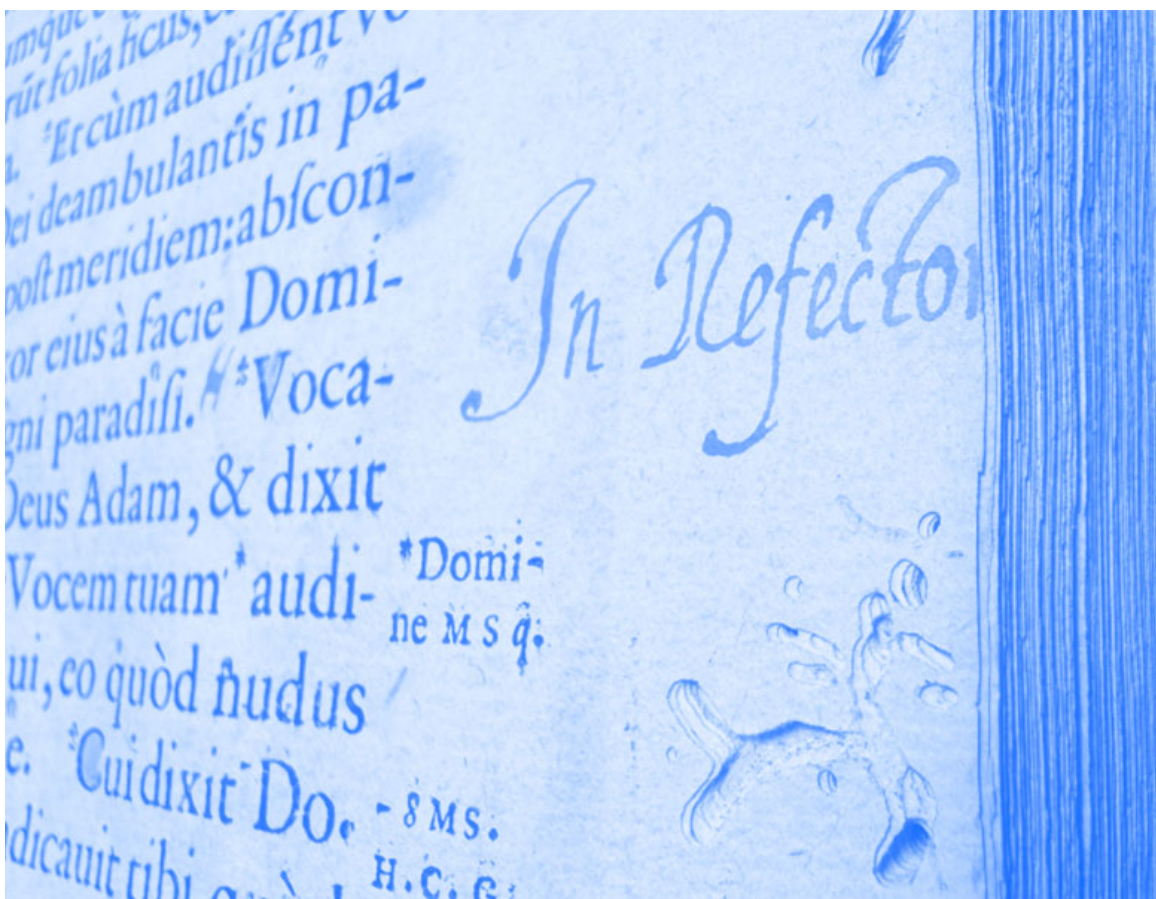 rũt folia ficus,
Et cùm audissent vo
Dei deambulantis in pa-
post meridiem: abscon-
eius à facie Domi-
gni paradisi. Voca-
Deus Adam, & dixit
Vocem tuam audi-
ui, eo quòd nudus
e. Cui dixit Do.
dicauit tibi
*Domi-
ne M S q̃.
- 8 M S.
H. C.
In Refector